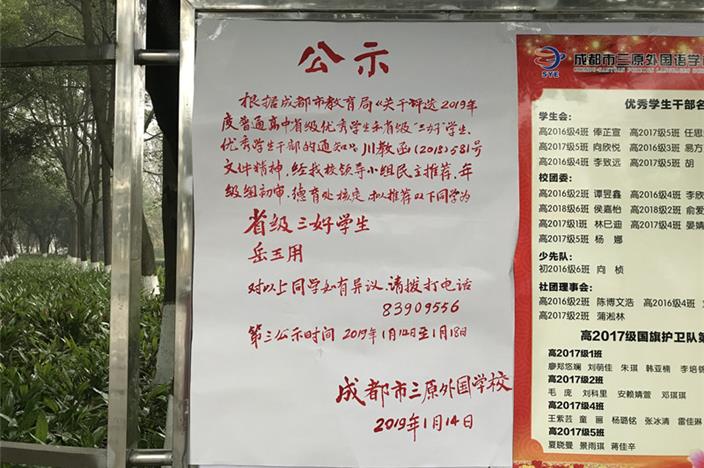 公示
根据成都市教育局《关于评选2019年
度普通高中省级优秀学生和省级"三好"学生、
优秀学生干部的通知》川教函(2018)581号
文件精神，经我校领导小组民主推荐，年
级组初审，德育处核定，拟推荐以下同学为
省级三好学生
岳玉用
对以上同学如有异议，请拨打电话
83909556
第三公示时间 2019年1月12日至1月18日
成都市三原外国学校
2019年1月14日
SYE
成都市三原外国语学
优秀学生干部名
学生会：
高2016级2班 俸芷宣 高2017级5班 任思
高2017级5班 向欣悦 高2016级3班 易方
高2016级4班 李致远 高2017级5班 胡
校团委：
高2016级2班 谭昱鑫 高2016级4班 李欣
高2018级6班 侯嘉怡 高2018级2班 俞爱
高2017级1班 林巳迪 高2017级4班 晏婧
高2017级5班 杨 娜
少先队：
初2016级6班 向 桢
社团理事会：
高2016级2班 陈博文浩 高2016级4班
高2017级2班 蒲淞林
高2017级国旗护卫队第
高2017级1班
廖郑悠斓 刘萌佳 朱琪 韩亚楠 李培
高2017级2班
毛 庞 刘科里 安赖婧萱 邓琪琪
高2017级4班
王紫芸 童 丽 杨璐铭 张冰清 雷佳淋
高2017级5班
夏晓曼 景雨琪 蒋佳辛